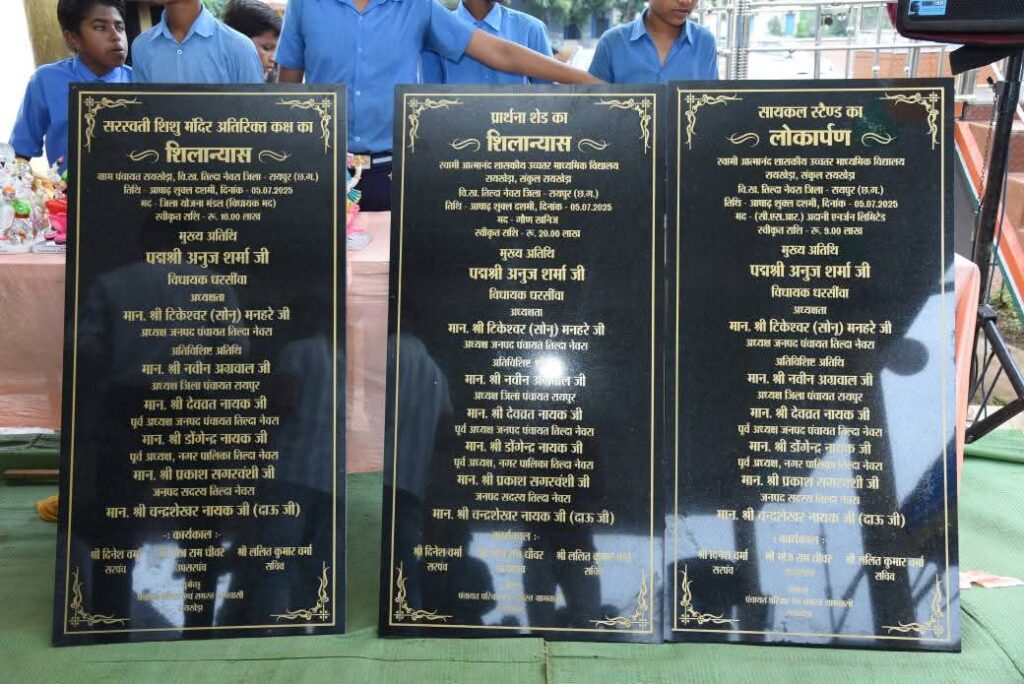 सरस्वती शिशु मंदिर अतिरिक्त कक्ष का
शिलान्यास
ग्राम पंचायत रायखेड़ा, वि.ख. तिल्दा नेवरा जिला - रायपुर (छ.ग.)
तिथि - आषाढ़ शुक्ल दशमी, दिनांक - 05.07.2025
मद - जिला योजना मंडल (विधायक मद)
स्वीकृत राशि - रू. 10.00 लाख
मुख्य अतिथि
पद्मश्री अनुज शर्मा जी
विधायक धरसींवा
अध्यक्षता
मान. श्री टिकेश्वर (सोनू) मनहरे जी
अध्यक्ष जनपद पंचायत तिल्दा नेवरा
अतिविशिष्ट अतिथि
मान. श्री नवीन अग्रवाल जी
अध्यक्ष जिला पंचायत रायपुर
मान. श्री देवव्रत नायक जी
पूर्व अध्यक्ष जनपद पंचायत तिल्दा नेवरा
मान. श्री डोंगेन्द्र नायक जी
पूर्व अध्यक्ष, नगर पालिका तिल्दा नेवरा
मान. श्री प्रकाश सगरवंशी जी
जनपद सदस्य तिल्दा नेवरा
मान. श्री चन्द्रशेखर नायक जी (दाऊ जी)
-: कार्यकाल :-
श्री दिनेश वर्मा राम धीवर श्री ललित कुमार वर्मा
सरपंच उपसरपंच सचिव
रायखेड़ा
प्रार्थना शेड का
शिलान्यास
स्वामी आत्मानंद शासकीय उच्चतर माध्यमिक विद्यालय
रायखेड़ा, संकुल रायखेड़ा
वि.ख. तिल्दा नेवरा जिला - रायपुर (छ.ग.)
तिथि - आषाढ़ शुक्ल दशमी, दिनांक - 05.07.2025
मद - गौण खनिज
स्वीकृत राशि - रू. 20.00 लाख
मुख्य अतिथि
पद्मश्री अनुज शर्मा जी
विधायक धरसींवा
अध्यक्षता
मान. श्री टिकेश्वर (सोनू) मनहरे जी
अध्यक्ष जनपद पंचायत तिल्दा नेवरा
अतिविशिष्ट अतिथि
मान. श्री नवीन अग्रवाल जी
अध्यक्ष जिला पंचायत रायपुर
मान. श्री देवव्रत नायक जी
पूर्व अध्यक्ष जनपद पंचायत तिल्दा नेवरा
मान. श्री डोंगेन्द्र नायक जी
पूर्व अध्यक्ष, नगर पालिका तिल्दा नेवरा
मान. श्री प्रकाश सगरवंशी जी
जनपद सदस्य तिल्दा नेवरा
मान. श्री चन्द्रशेखर नायक जी (दाऊ जी)
कार्यकाल :-
श्री दिनेश वर्मा राम धीवर श्री ललित कुमार वर्मा
सरपंच सचिव
पंचायत परिवार
सायकल स्टैण्ड का
लोकार्पण
स्वामी आत्मानंद शासकीय उच्चतर माध्यमिक विद्यालय
रायखेड़ा, संकुल रायखेड़ा
वि.ख. तिल्दा नेवरा जिला - रायपुर (छ.ग.)
तिथि - आषाढ़ शुक्ल दशमी, दिनांक - 05.07.2025
मद - (सी.एस.आर.) अदानी एनर्जन लिमिटेड
स्वीकृत राशि - रू. 9.00 लाख
मुख्य अतिथि
पद्मश्री अनुज शर्मा जी
विधायक धरसींवा
अध्यक्षता
मान. श्री टिकेश्वर (सोनू) मनहरे जी
अध्यक्ष जनपद पंचायत तिल्दा नेवरा
अतिविशिष्ट अतिथि
मान. श्री नवीन अग्रवाल जी
अध्यक्ष जिला पंचायत रायपुर
मान. श्री देवव्रत नायक जी
पूर्व अध्यक्ष जनपद पंचायत तिल्दा नेवरा
मान. श्री डोंगेन्द्र नायक जी
पूर्व अध्यक्ष, नगर पालिका तिल्दा नेवरा
मान. श्री प्रकाश सगरवंशी जी
जनपद सदस्य तिल्दा नेवरा
मान. श्री चन्द्रशेखर नायक जी (दाऊ जी)
-: कार्यकाल :-
श्री दिनेश वर्मा श्री भोज राम धीवर श्री ललित कुमार वर्मा
सरपंच उपसरपंच सचिव
पंचायत परिवार एवं समस्त ग्रामवासी